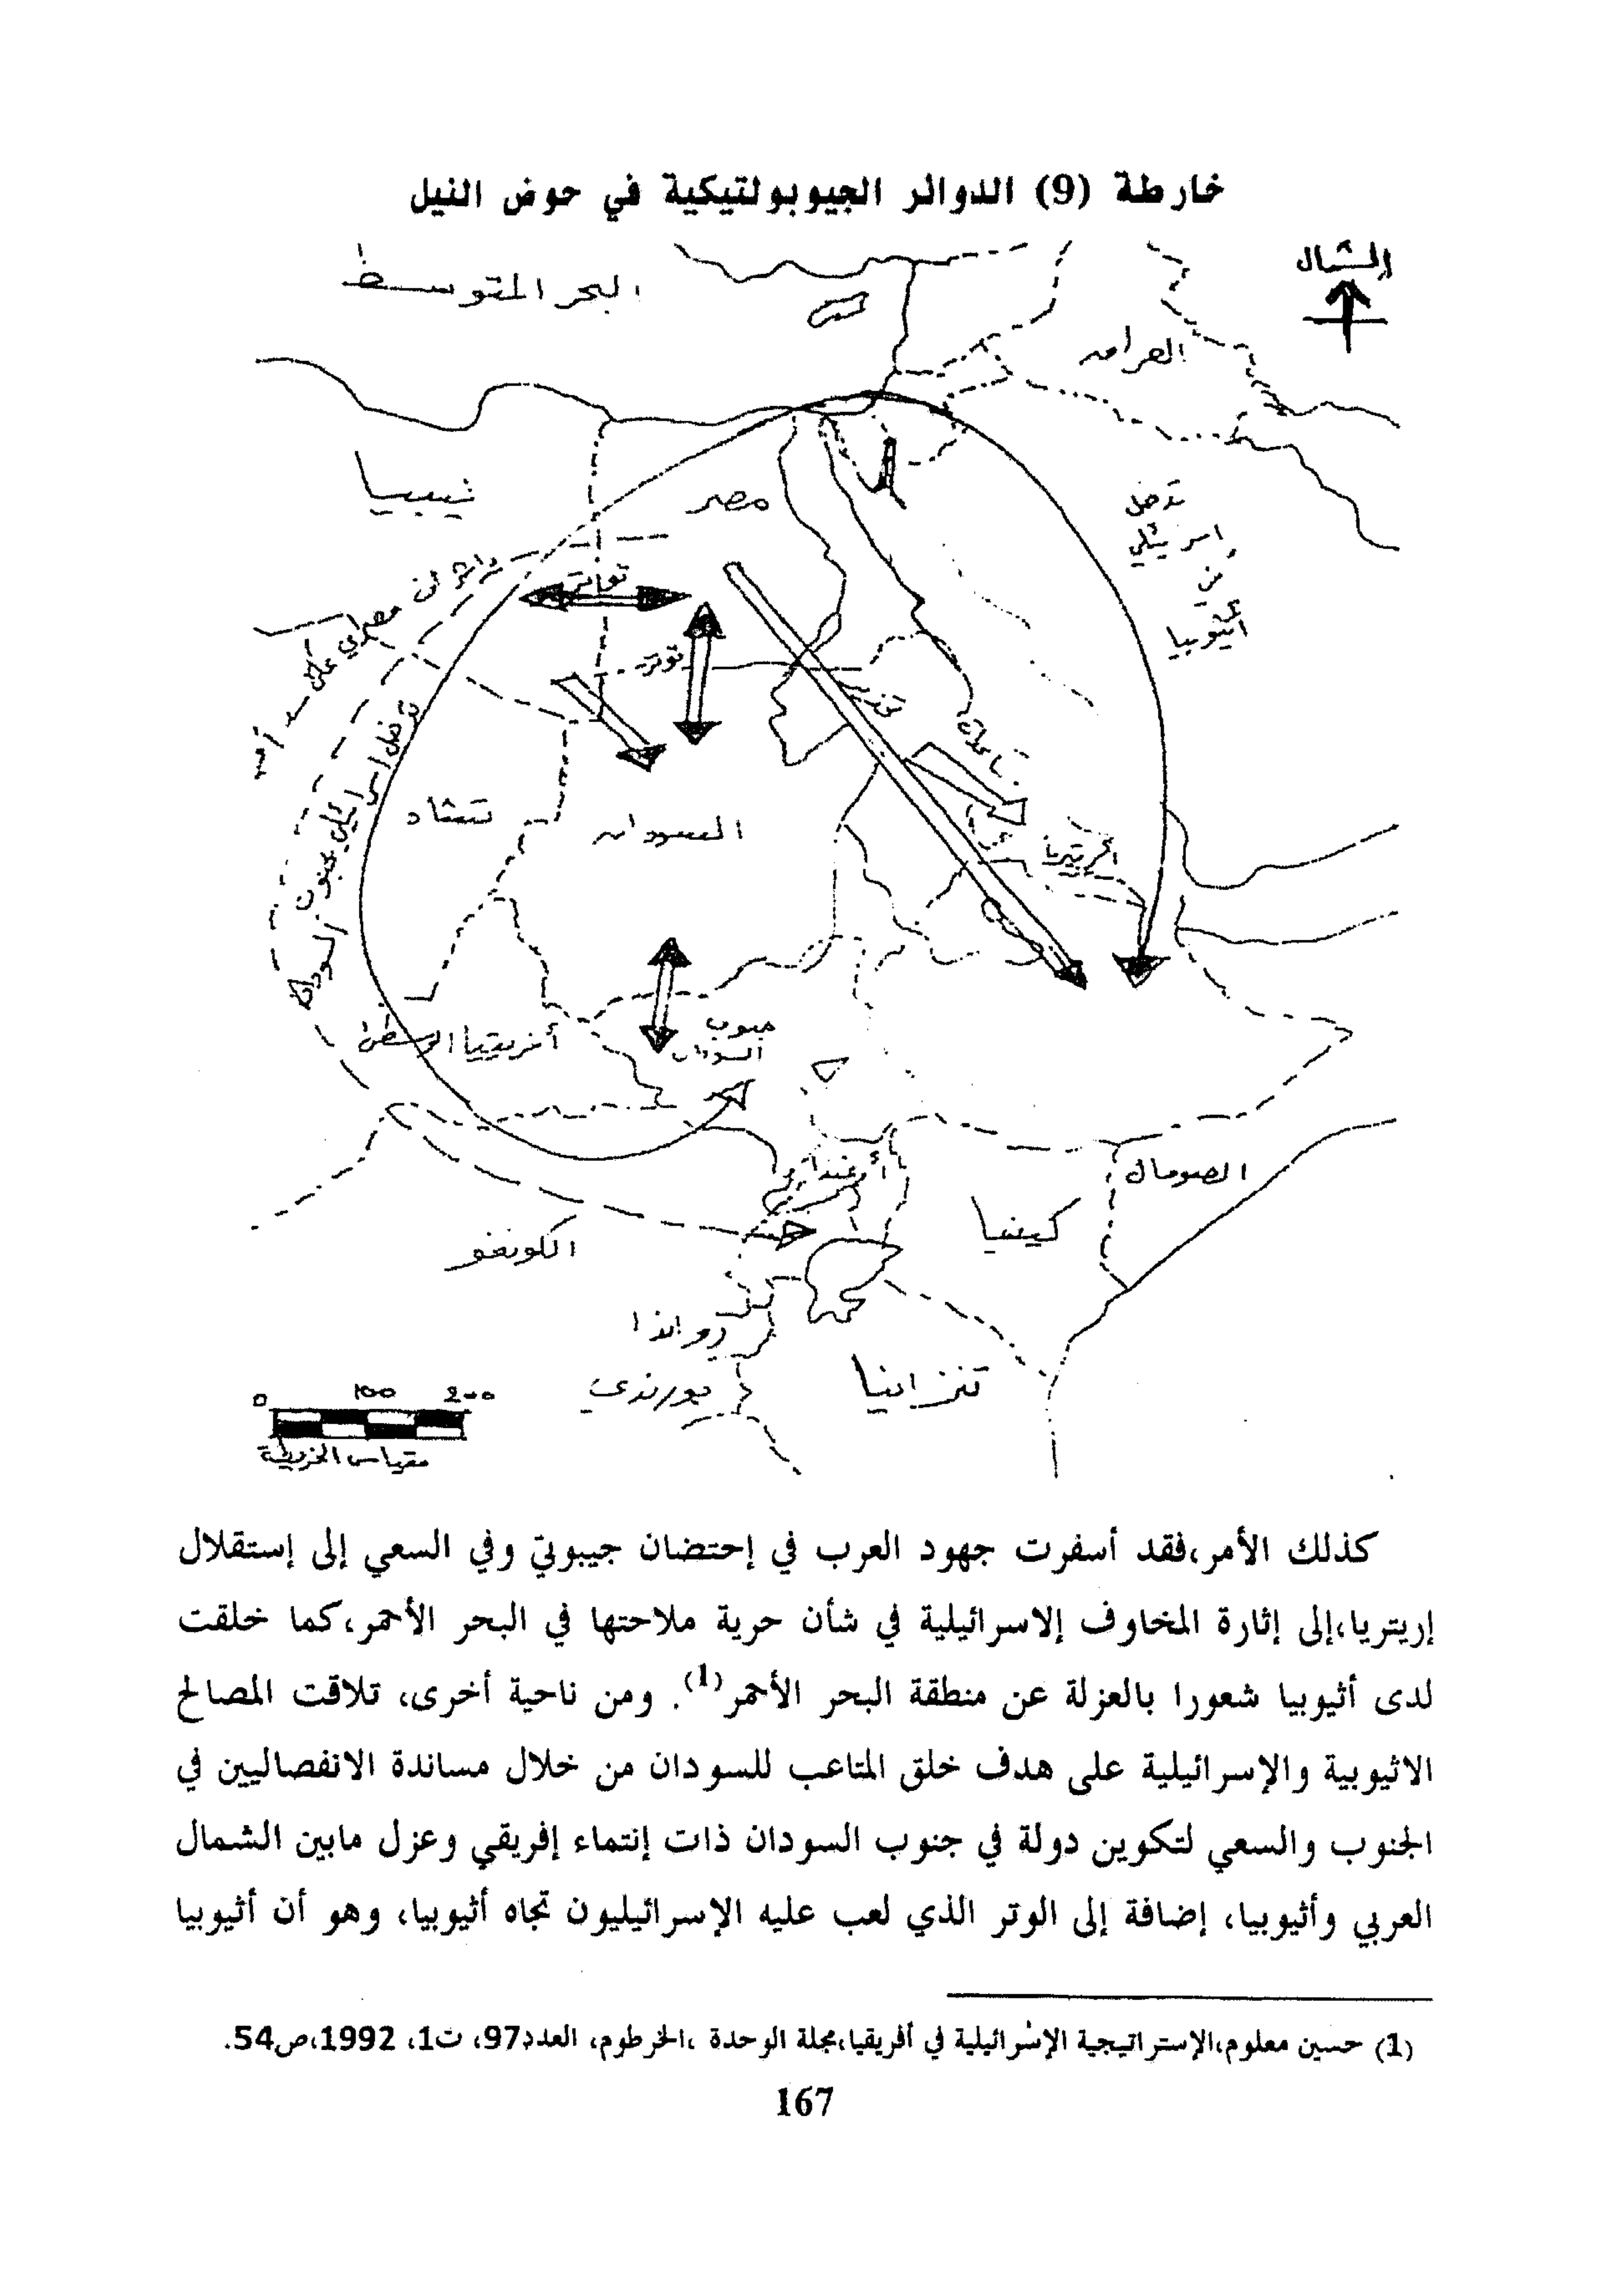 خارطة (9) الدوائر الجيوبولتيكية في حوض النيل
الشمال
البحر المتوسط
العراق
ليبيا
مصر
تدخل
اسرائيلي
في
اثيوبيا
توتر
توتر
تدخل اسرائيلي بجنوب السودان
تشاد
السودان
ارتيريا
أفريقيا الوسطى
جنوب
السودان
أوغندا
الصومال
كينيا
الكونغو
رواندا
بورندي
تنزانيا
0 100 200
مقياس الخريطة
كذلك الأمر،فقد أسفرت جهود العرب في إحتضان جيبوتي وفي السعي إلى إستقلال
إريتريا،إلى إثارة المخاوف إلاسرائيلية في شأن حرية ملاحتها في البحر الأحمر،كما خلقت
لدى أثيوبيا شعورا بالعزلة عن منطقة البحر الأحمر(1). ومن ناحية أخرى، تلاقت المصالح
الاثيوبية والإسرائيلية على هدف خلق المتاعب للسودان من خلال مساندة الانفصاليين في
الجنوب والسعي لتكوين دولة في جنوب السودان ذات إنتماء إفريقي وعزل مابين الشمال
العربي وأثيوبيا، إضافة إلى الوتر الذي لعب عليه الإسرائيليون تجاه أثيوبيا، وهو أن أثيوبيا
(1) حسين معلوم،الإستراتيجية الإسرائيلية في أفريقيا،مجلة الوحدة ،الخرطوم، العدد97، ت1، 1992،ص54.
167